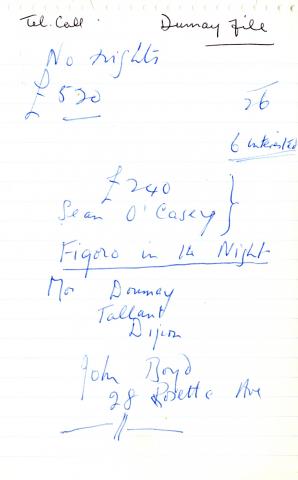 Tel. Call. Dumay file
No rights
£520
26
6 interested
£240
Sean O'Casey }
Figaro in 14 Night
Mor Doumay
Tallant
Dijon
John Boyd
28 Rosetta Ave